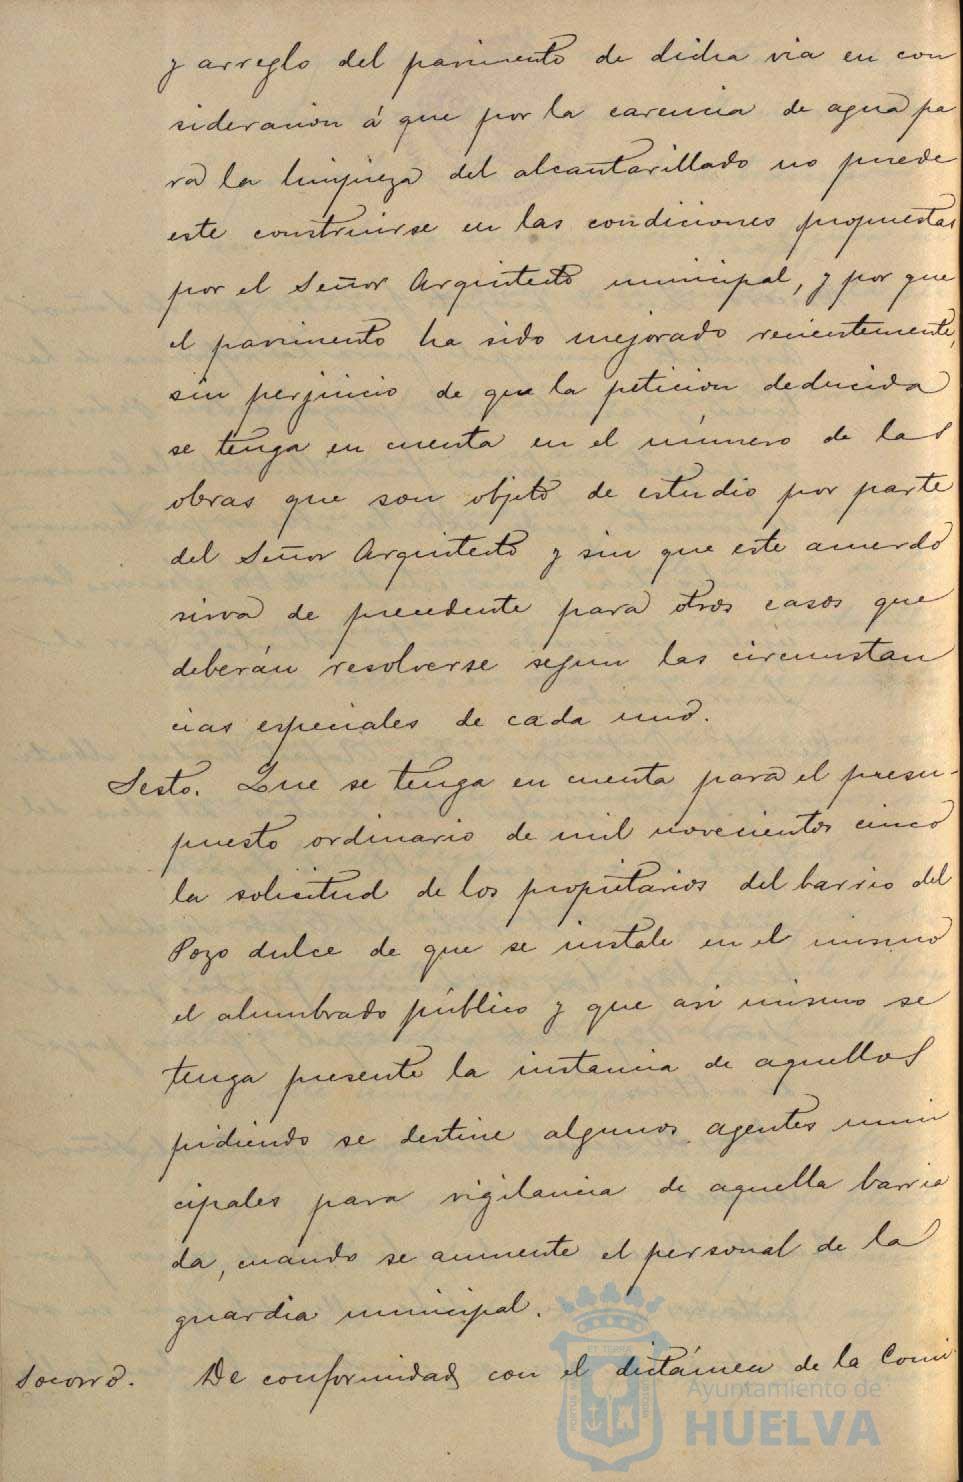 y arreglo del pavimento de dicha via en con
sideracion á que por la carencia de agua pa
ra la limpieza del alcantarillado no puede
este construirse en las condiciones propuestas
por el Señor Arquitecto municipal, y por que
el pavimento ha sido mejorado recientemente,
sin perjuicio de que la peticion deducida
se tenga en cuenta en el número de las
obras que son objeto de estudio por parte
del Señor Arquitecto y sin que este acuerdo
sirva de precedente para otros casos que
deberán resolverse segun las circunstan
cias especiales de cada uno.
Sesto. Que se tenga en cuenta para el presu-
puesto ordinario de mil novecientos cinco
la solicitud de los propietarios del barrio del
Pozo dulce de que se instale en el mismo
el alumbrado público y que asi mismo se
tenga presente la instancia de aquellos
pidiendo se destine algunos agentes muni
cipales para vigilancia de aquella barria
da, cuando se aumente el personal de la
guardia municipal.
Socorro. De conformidad con el dictámen de la Comi
Ayuntamiento de
HUELVA